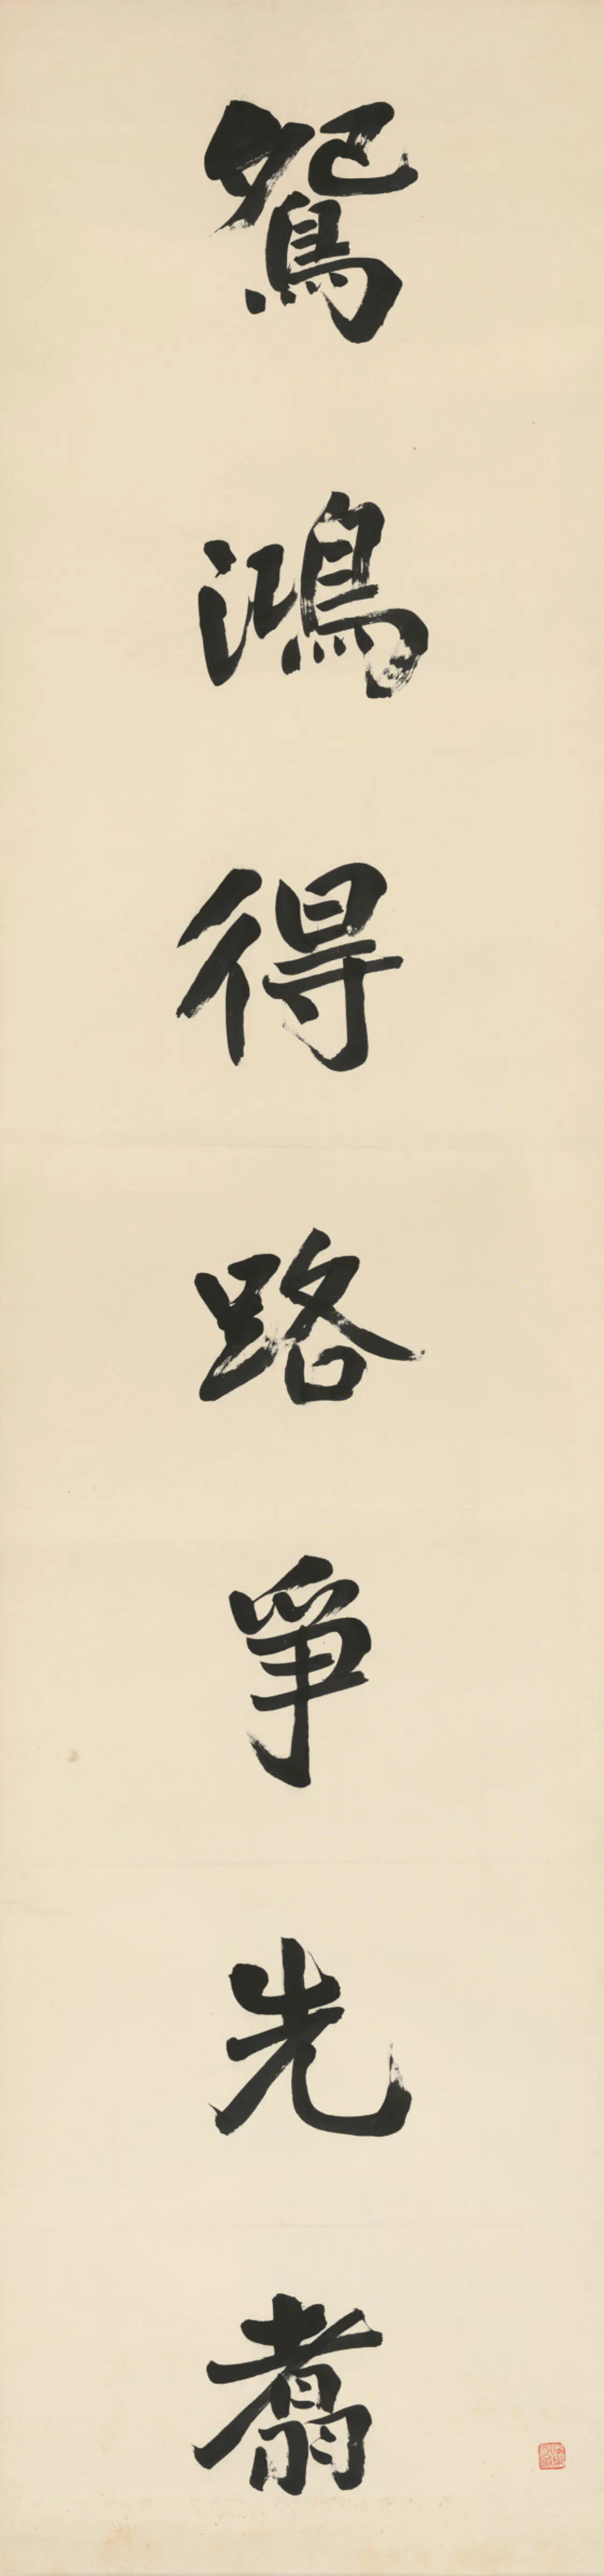 鴛鴻得路爭先翥